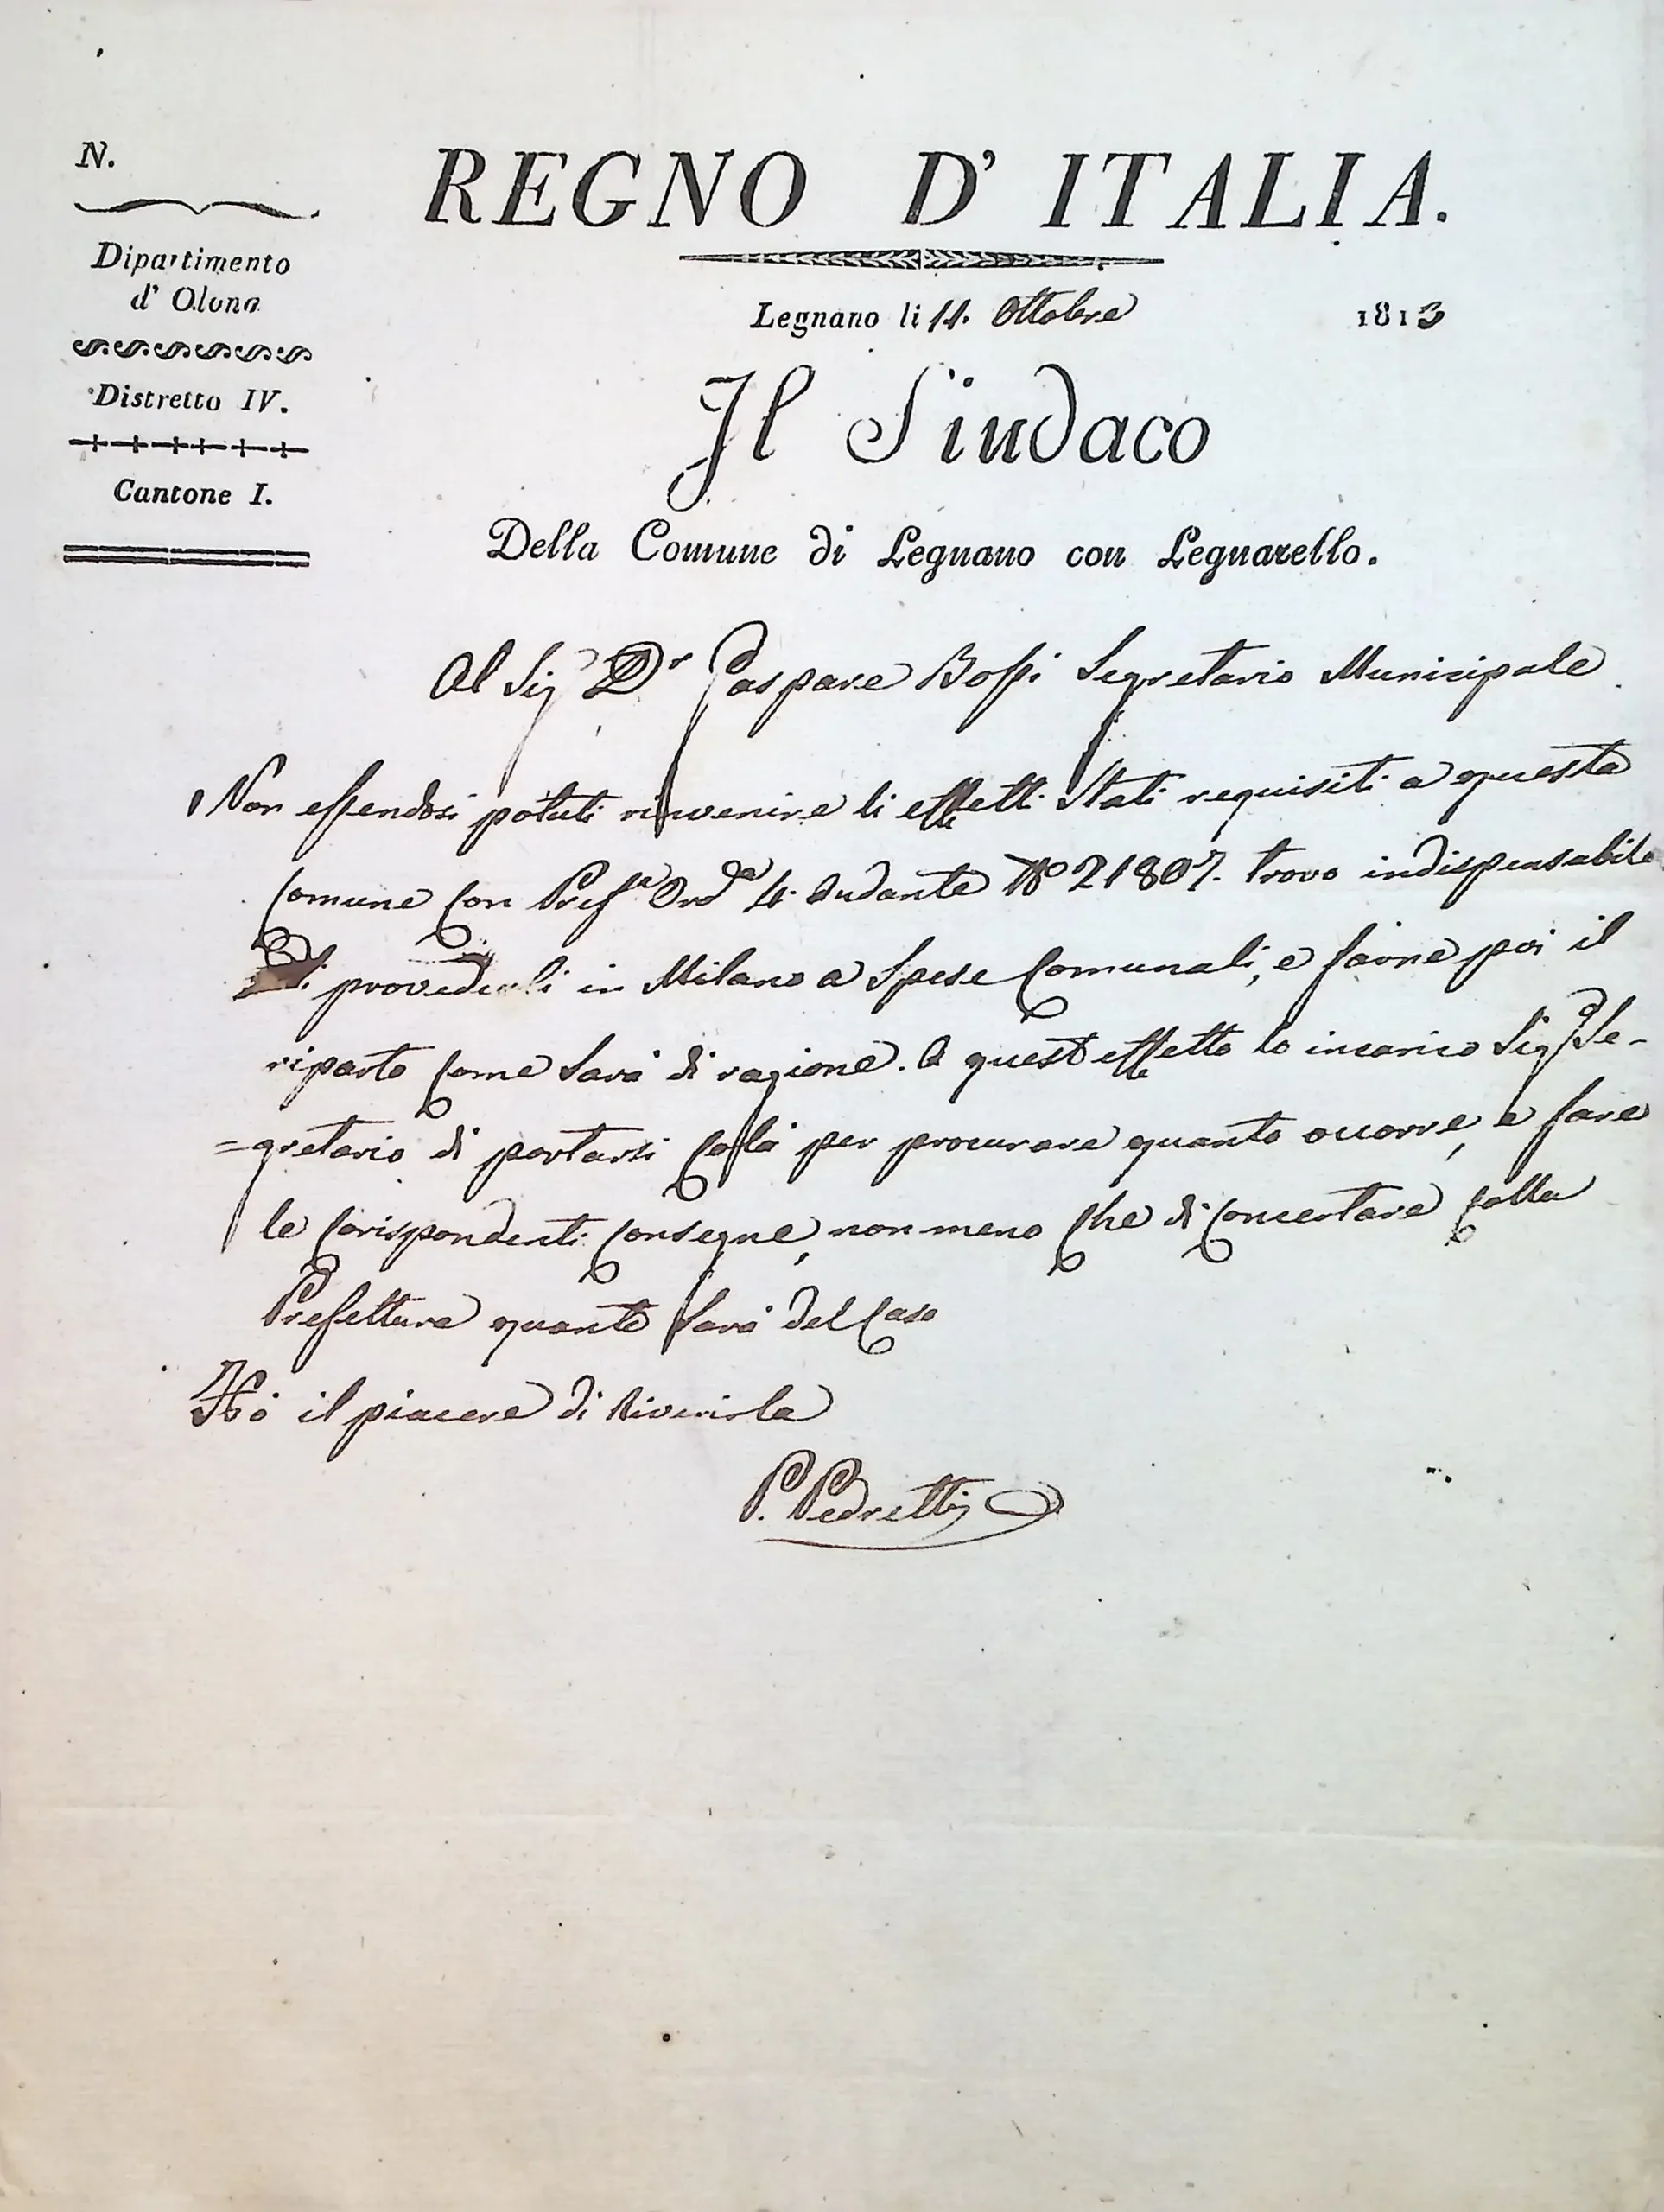 N.
REGNO D' ITALIA.
Dipartimento
d' Olona
Legnano li 11. Ottobre 1813
Distretto IV.
Il Sindaco
Cantone I.
Della Comune di Legnano con Legnarello.
Al Sig.r D.r Gaspare Bossi Segretario Municipale
Non essendosi potuti rinvenire li effetti stati requisiti a questa
Comune con Pref.a Ord.a 4. andante N.o 21807. trovo indispensabile
di provederli in Milano a spese Comunali, e farne poi il
riparto Come sarà di ragione. A quest effetto lo incarico Sig.r Se-
=gretario di portarsi Colà per procurare quanto ocorre, e fare
le Corispondenti Consegne, non meno Che di Concertare Colla
Prefettura quanto sarà del Caso
Hò il piacere di riverirla
P. Pedretti